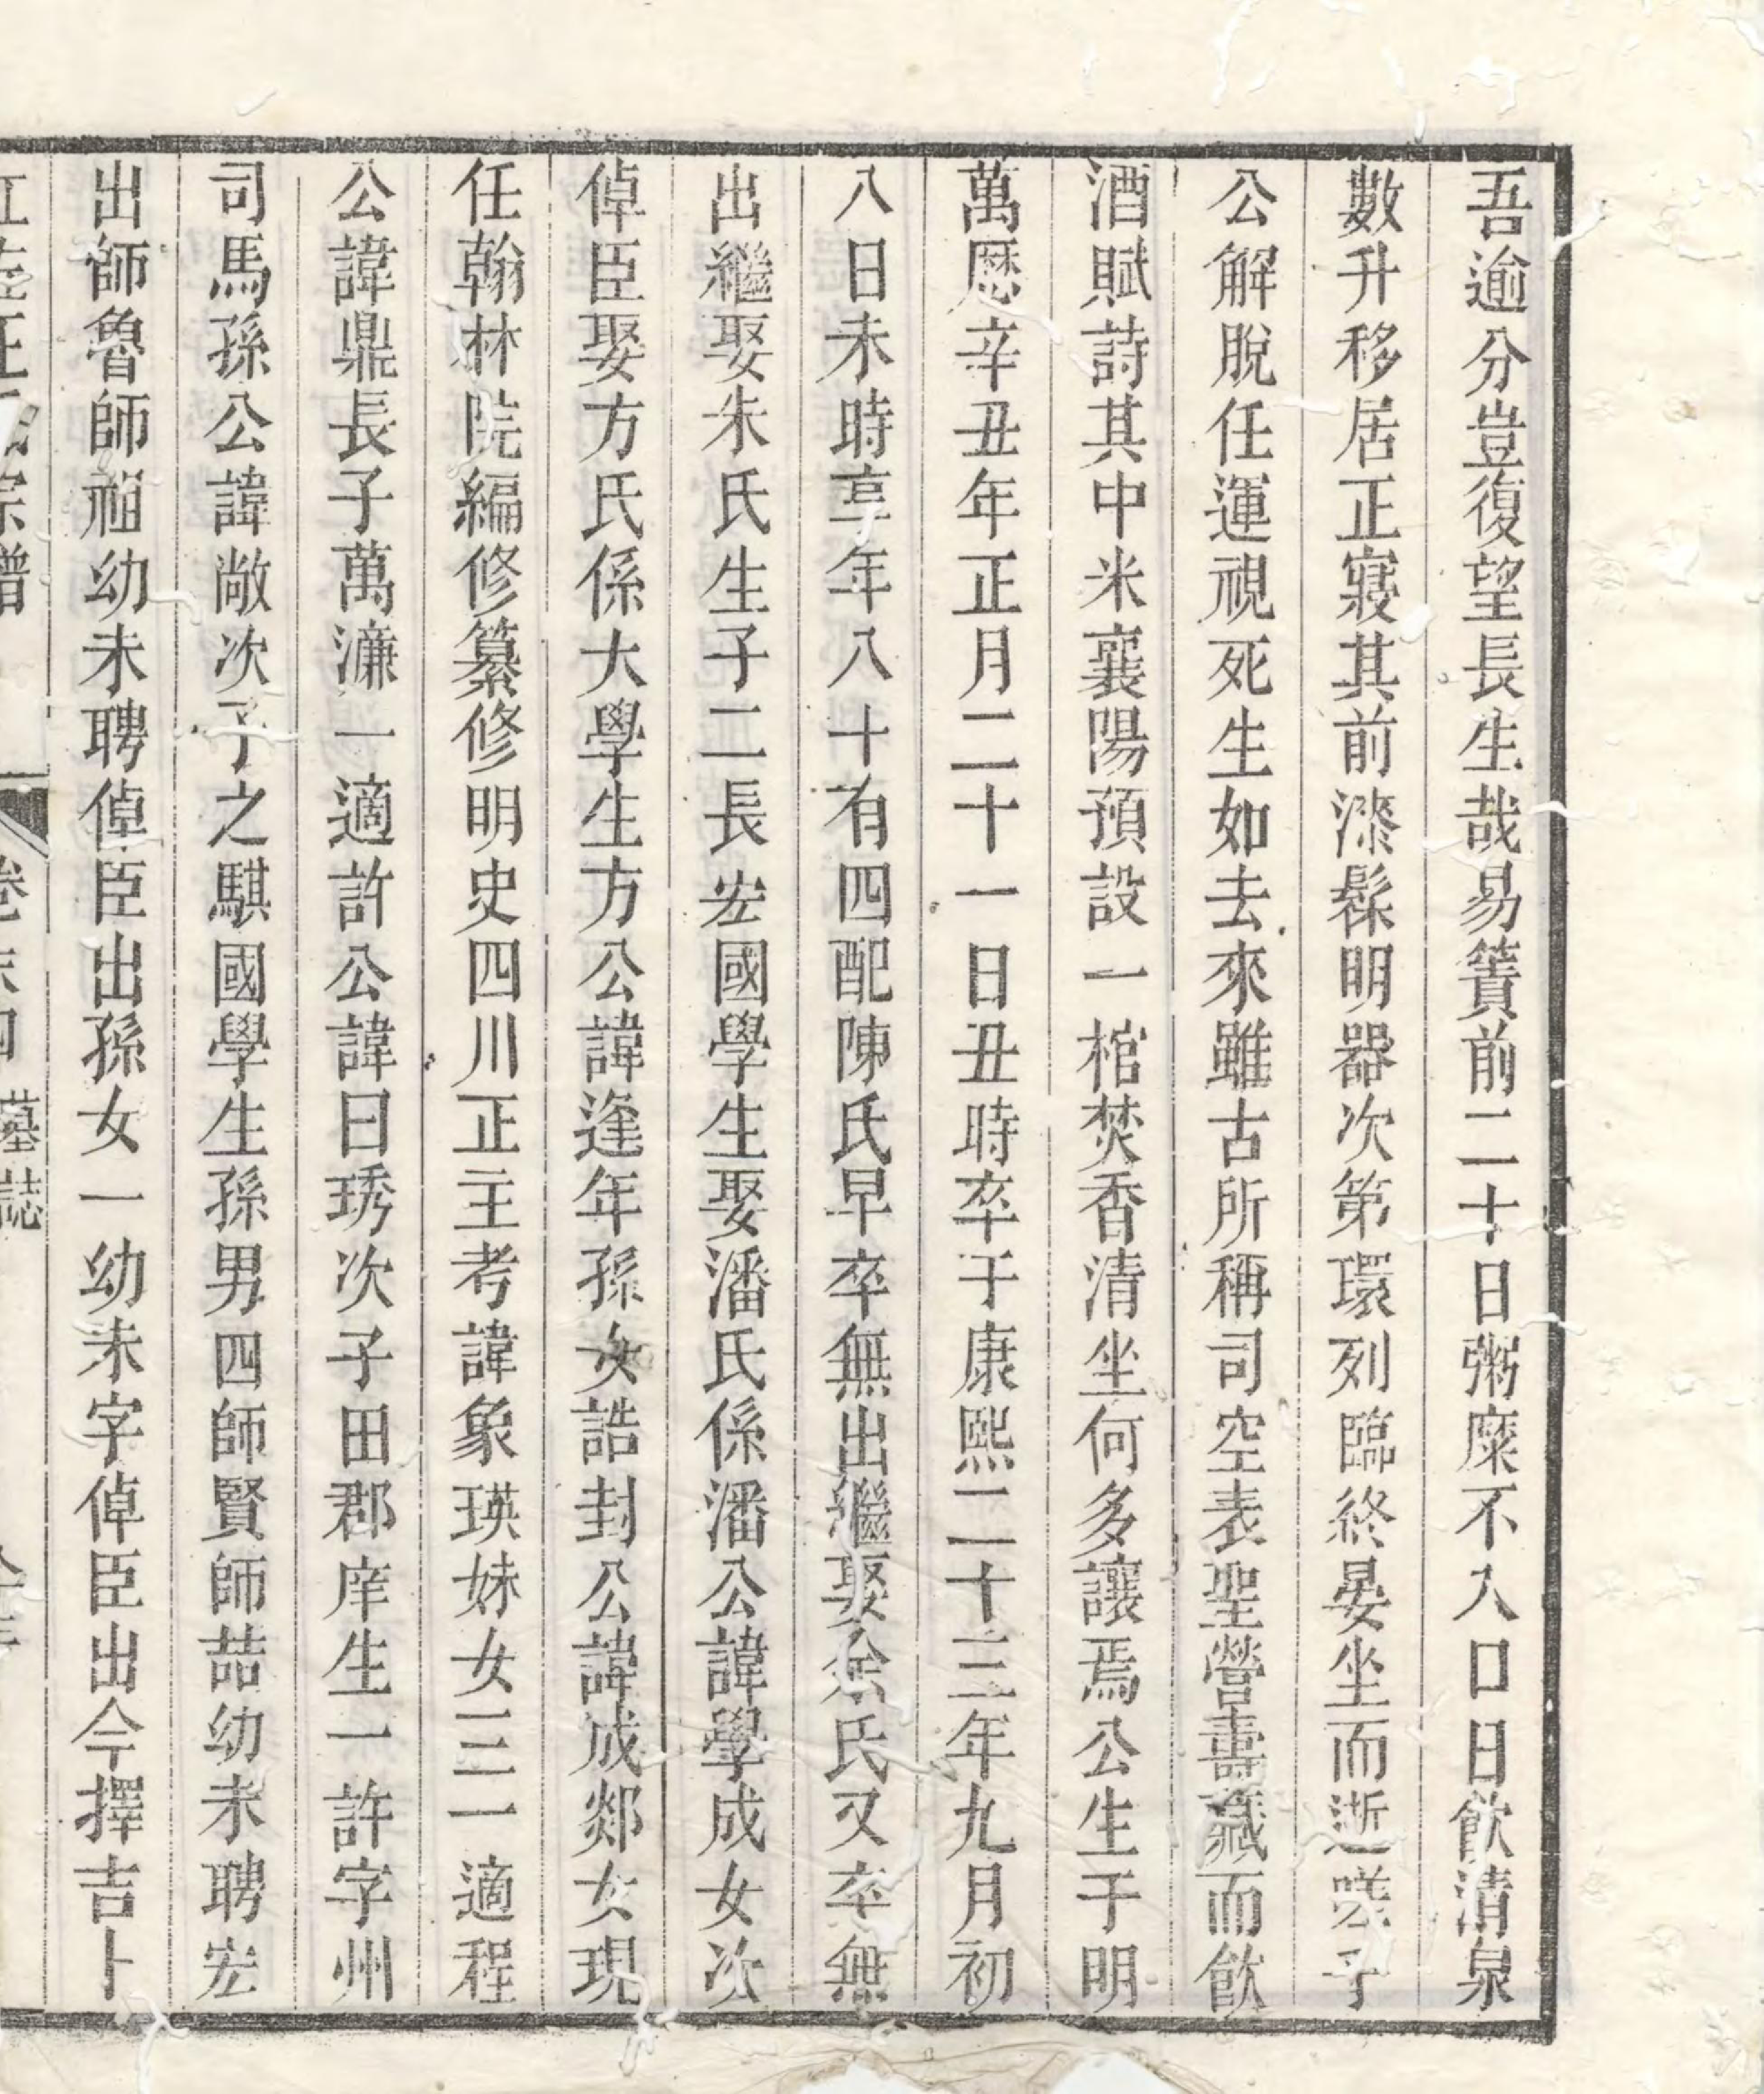 吾逾分豈復望長生哉易簀前二十日粥糜不入口日飲清泉
數升移居正寢其前漆髹明器次第環列臨終晏坐而逝嗟乎
公解脫任運視死生如去來雖古所稱司空表聖營壽藏而飲
酒賦詩其中米襄陽預設一棺焚香清坐何多讓焉公生于明
萬歷辛丑年正月二十一日丑時卒于康熙二十三年九月初
八日未時享年八十有四配陳氏早卒無出繼娶余氏又卒無
出繼娶朱氏生子二長宏國學生娶潘氏係潘公諱學成女次
倬臣娶方氏係大學生方公諱逢年孫女誥封公諱成郯女現
任翰林院編修纂修明史四川正主考諱象瑛妹女三一適程
公諱鼎長子萬濂一適許公諱曰琇次子田郡庠生一許字州
司馬孫公諱敞次子之騏國學生孫男四師賢師喆幼未聘宏
出師魯師禃幼未聘倬臣出孫女一幼未字倬臣出今擇吉卜
墓誌